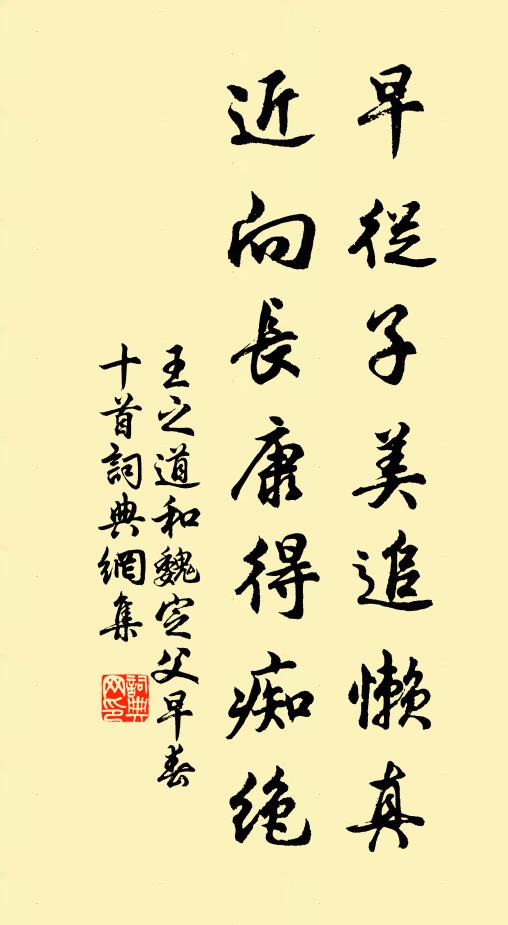 早從子美追懶真
近向長康得痴絕
王之道和魏定父早春
十首詞典網集
詞典網印